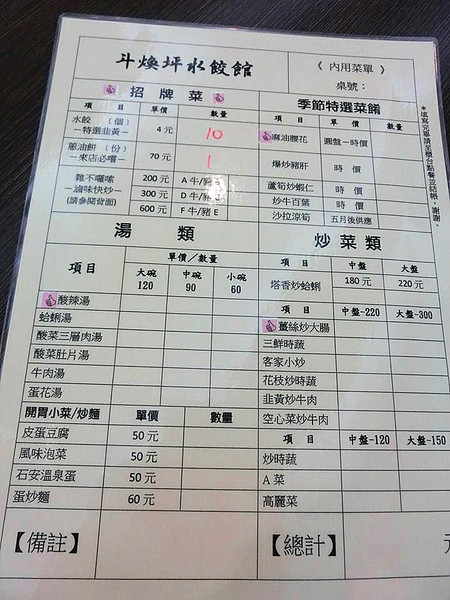 斗煥坪水餃館
《 內用菜單 》
桌號：
招 牌 菜
項 目 單價 數量
水餃 （個）
－特選韭黃－ 4 元 10
蔥油餅（份）
－來店必嚐－ 70 元 1
雜不囉嗦
－滷味快炒－
(請參閱背面)
200 元 A 牛/豬
300 元 D 牛/
600 元 F 牛/豬 E
季節特選菜餚
項 目 單價 數量
麻油腰花 圓盤－時價
爆炒豬肝 時 價
蘆筍炒蝦仁 時 價
炒牛百葉 時 價
沙拉涼筍 五月後供應
*填寫完畢請至櫃台點餐並結帳，謝謝。
湯 類
項目 單價／數量
大碗 中碗 小碗
120 90 60
酸辣湯
蛤蜊湯
酸菜三層肉湯
酸菜肚片湯
牛肉湯
蛋花湯
開胃小菜/炒麵 單價 數量
皮蛋豆腐 50 元
風味泡菜 50 元
石安溫泉蛋 50 元
蛋炒麵 60 元
炒菜類
項 目 中盤 大盤
塔香炒蛤蜊 180 元 220 元
項 目 中盤-220 大盤-300
薑絲炒大腸
三鮮時蔬
客家小炒
花枝炒時蔬
韭黃炒牛肉
空心菜炒牛肉
項 目 中盤-120 大盤-150
炒時蔬
A 菜
高麗菜
【備註】
【總計】